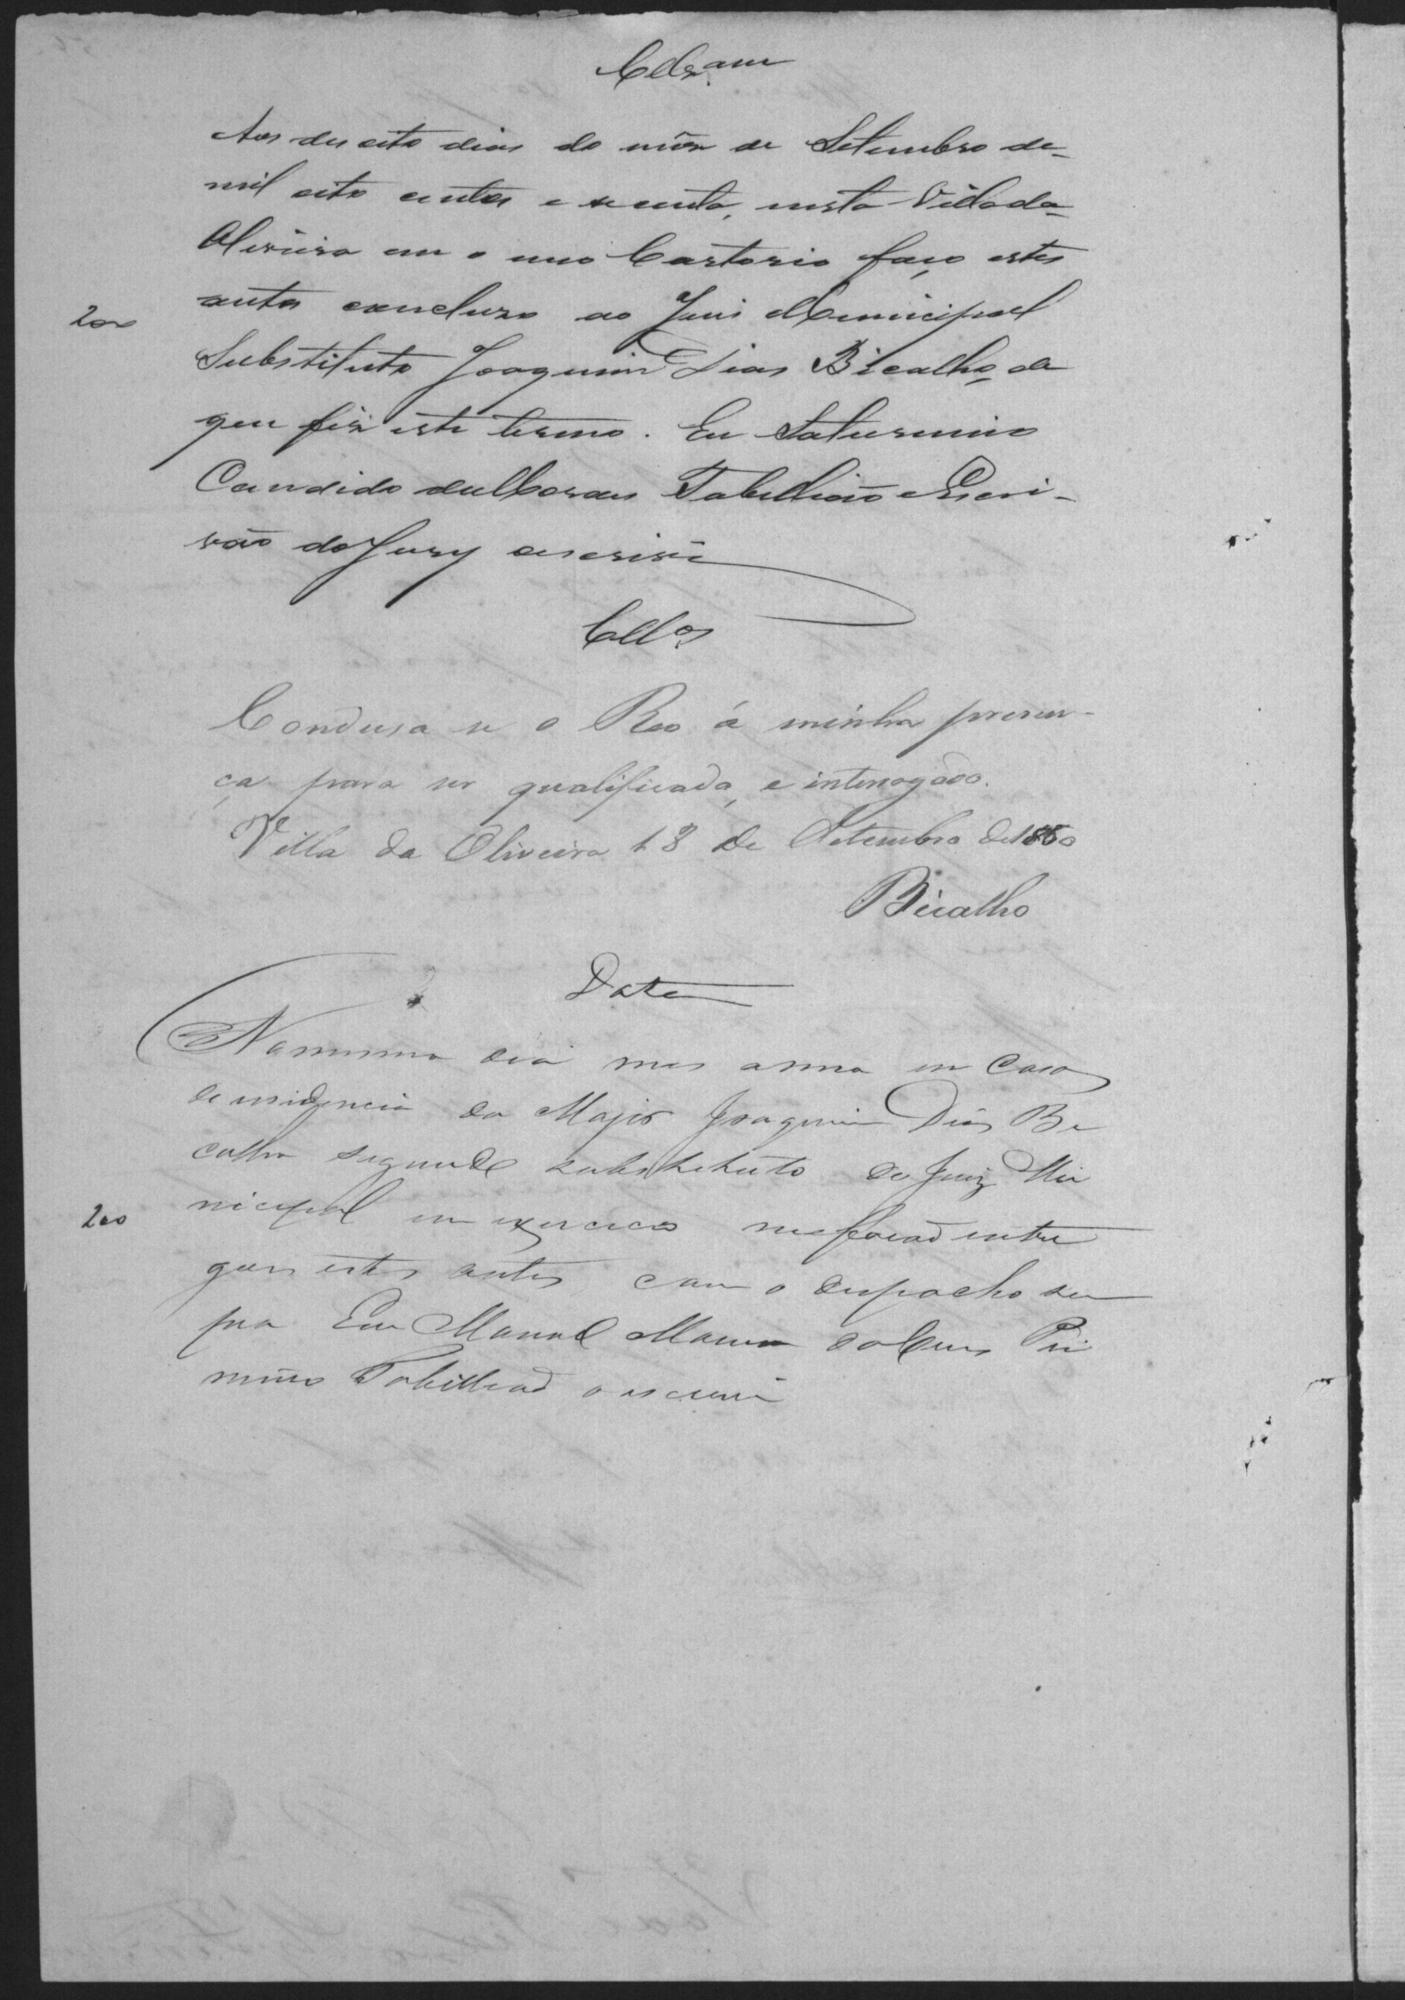 Clzam
Aos desoito dias do mês de Setembro de
mil oito centos e secenta, nesta Villa da
Oliveira em o meo Cartorio faço estes
200
autos concluzo ao Juis Municipal
Substituto Joaquim Dias Bicalho, de
que fiz este termo. Eu Saturnino
Candido de Moraes Tabellião e Escri-
vão do Jury o escrivi
Cllos
Condusa se o Reo á minha presen-
ça para ser qualificado, e interrogado.
Villa da Oliveira 18 de Setembro de 1860
Bicalho
Data
No mesmo dia mes anno em Casa
de residencia do Major Joaquim Dias Bi
calho segundo substituto do Juiz Mu
200
nicipal em exercicio me foraõ entre
gues estes autos com o despacho su
pra Eu Manoel Maria da Pri
meiro Tabelliaõ o escrevi